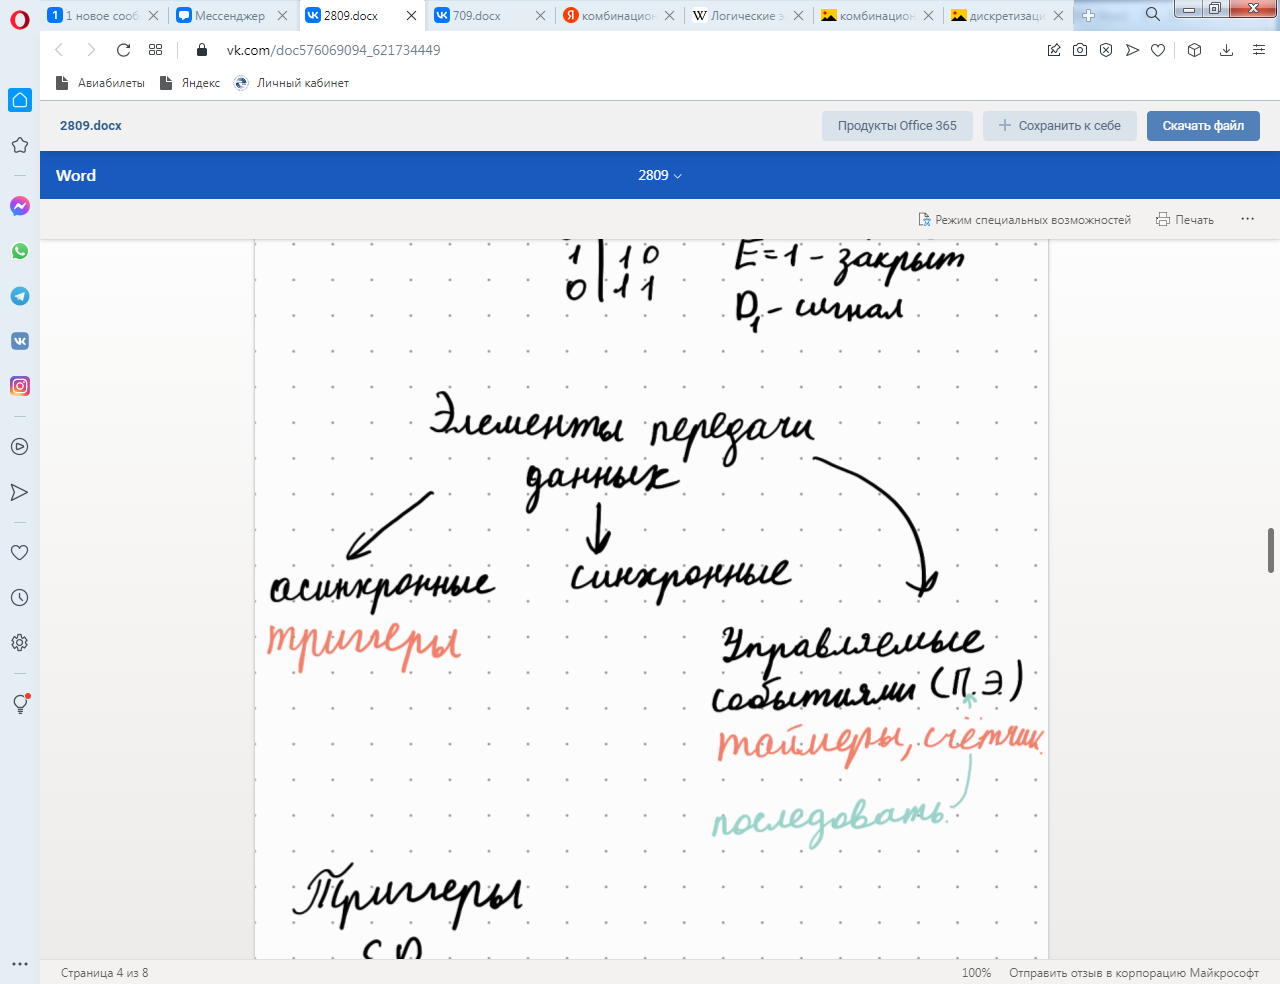 1 новое сооб
Мессенджер
2809.docx
709.docx
комбинацион
Логические э
комбинацион
дискретизаци
vk.com/doc576069094_621734449
Авиабилеты
Яндекс
Личный кабинет
2809.docx
Продукты Office 365
Сохранить к себе
Скачать файл
Word
2809
Режим специальных возможностей
Печать
1 | 1 0
E=1 - закрыт
0 | 1 1
D1 - сигнал
Элементы передачи
данных
асинхронные
синхронные
триггеры
Управляемые
событиями (П.Э.)
таймеры, счётчик.
последовать.
Триггеры
Страница 4 из 8
100%
Отправить отзыв в корпорацию Майкрософт